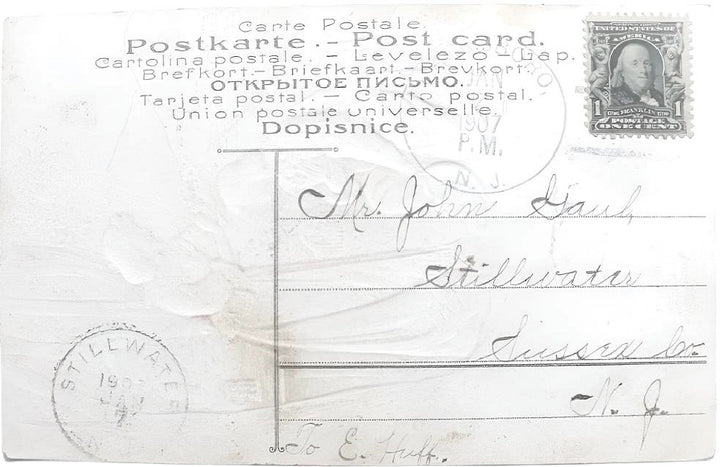 Carte Postale.
Postkarte. - Post card.
Cartolina postale. - Levelező-Lap.
Brefkort.- Briefkaart.- Brevkort.
ОТКРЫТОЕ ПИСЬМО.
Tarjeta postal. - Carto postal.
Union postale universelle.
Dopisnice.
JAN
1907
P.M.
N. J.
UNITED STATES OF
AMERICA
1 FRANKLIN 1
POSTAGE
ONE CENT
Mr. John Gaul,
Stillwater
Sussex Co.
N. J.
To E. Huff.
STILLWATER
190
JAN